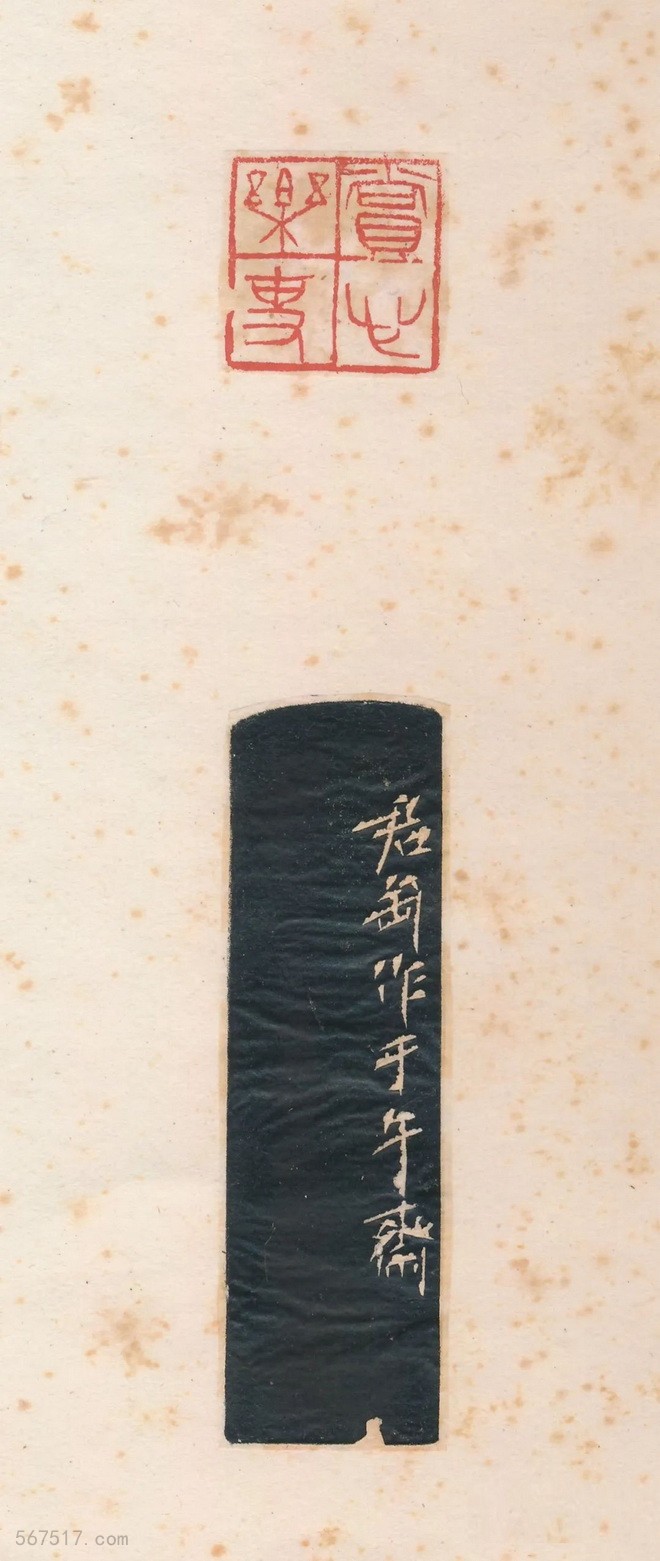 賞心
樂事
君匋作于午齋
567517.com